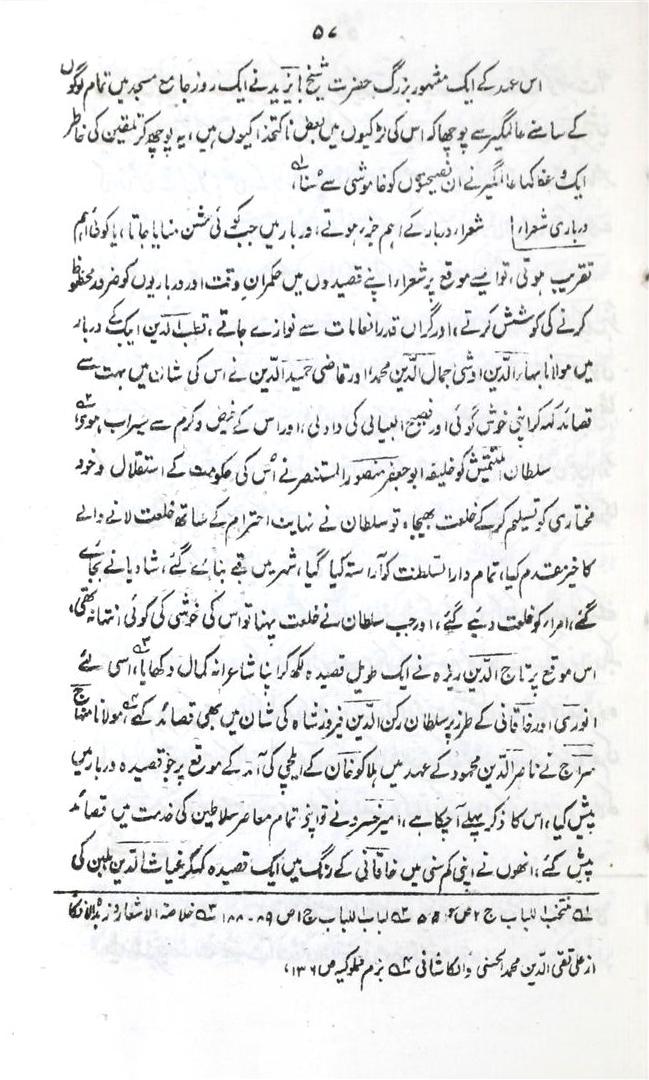 ۵۷
اس عہد کے ایک مشہور بزرگ حضرت شیخ بایزید نے ایک روز جامع مسجد میں تمام لوگوں
کے سامنے عالمگیر سے پوچھا کہ اس کی لڑکیوں میں بعض ناکتخدا کیوں ہیں، یہ پوچھ کر تلقین کی خاطر
ایک وعظ کہا عالمگیر نے ان نصیحتوں کو خاموشی سے سنا،
درباری شعراء شعراء دربار کے اہم جزء ہوتے، دربار میں جب کوئی جشن منایا جاتا، یا کوئی اہم
تقریب ہوتی، تو ایسے موقع پر شعراء اپنے قصیدوں میں حکمران وقت اور درباریوں کو ضرور محظوظ
کرنے کی کوشش کرتے، اور گراں قدر انعامات سے نوازے جاتے، قطب الدین ایبک کے دربار
میں مولانا بہاء الدین اوشی جمال الدین محمد اور قاضی حمید الدین نے اس کی شان میں بہت سے
قصائد کہہ کر اپنی خوش گوئی اور فصیح البیانی کی داد لی، اور اس کے فیض و کرم سے سیراب ہوئے،
سلطان التمش کو خلیفہ ابو جعفر منصور المستنصر نے اس کی حکومت کے استقلال و خود
مختاری کو تسلیم کر کے خلعت بھیجا، تو سلطان نے نہایت احترام کے ساتھ خلعت لانے والے
کا خیر مقدم کیا، تمام دار السلطنت کو آراستہ کیا گیا، شہر میں قبے بنائے گئے، شادیانے بجائے
گئے، امراء کو خلعت دیئے گئے، اور جب سلطان نے خلعت پہنا تو اس کی خوشی کی کوئی انتہا نہ تھی،
اس موقع پر تاج الدین ریزہ نے ایک طویل قصیدہ لکھ کر اپنا شاعرانہ کمال دکھایا، اسی نے
انوری اور خاقانی کے طرز پر سلطان رکن الدین فیروز شاہ کی شان میں بھی قصائد کہے، مولانا منہاج
سراج نے ناصر الدین محمود کے عہد میں ہلاکو خان کے ایلچی کی آمد کے موقع پر جو قصیدہ دربار میں
پیش کیا، اس کا ذکر پہلے آچکا ہے، امیر خسرو نے تو اپنے تمام معاصر سلاطین کی خدمت میں قصائد
پیش کئے، انھوں نے اپنی کم سنی میں خاقانی کے رنگ میں ایک قصیدہ کہہ کر غیاث الدین بلبن کی
۱ منتخب اللباب ج ۲ ص ۲ لباب الالباب ج ۱ ص ۸۹-۱۸۸ ۳ خلاصۃ الاشعار و زبدۃ الافکار
از علی تقی الدین محمد الحسنی والکاشانی ۴ بزم مملوکیہ ص ۱۳۶،